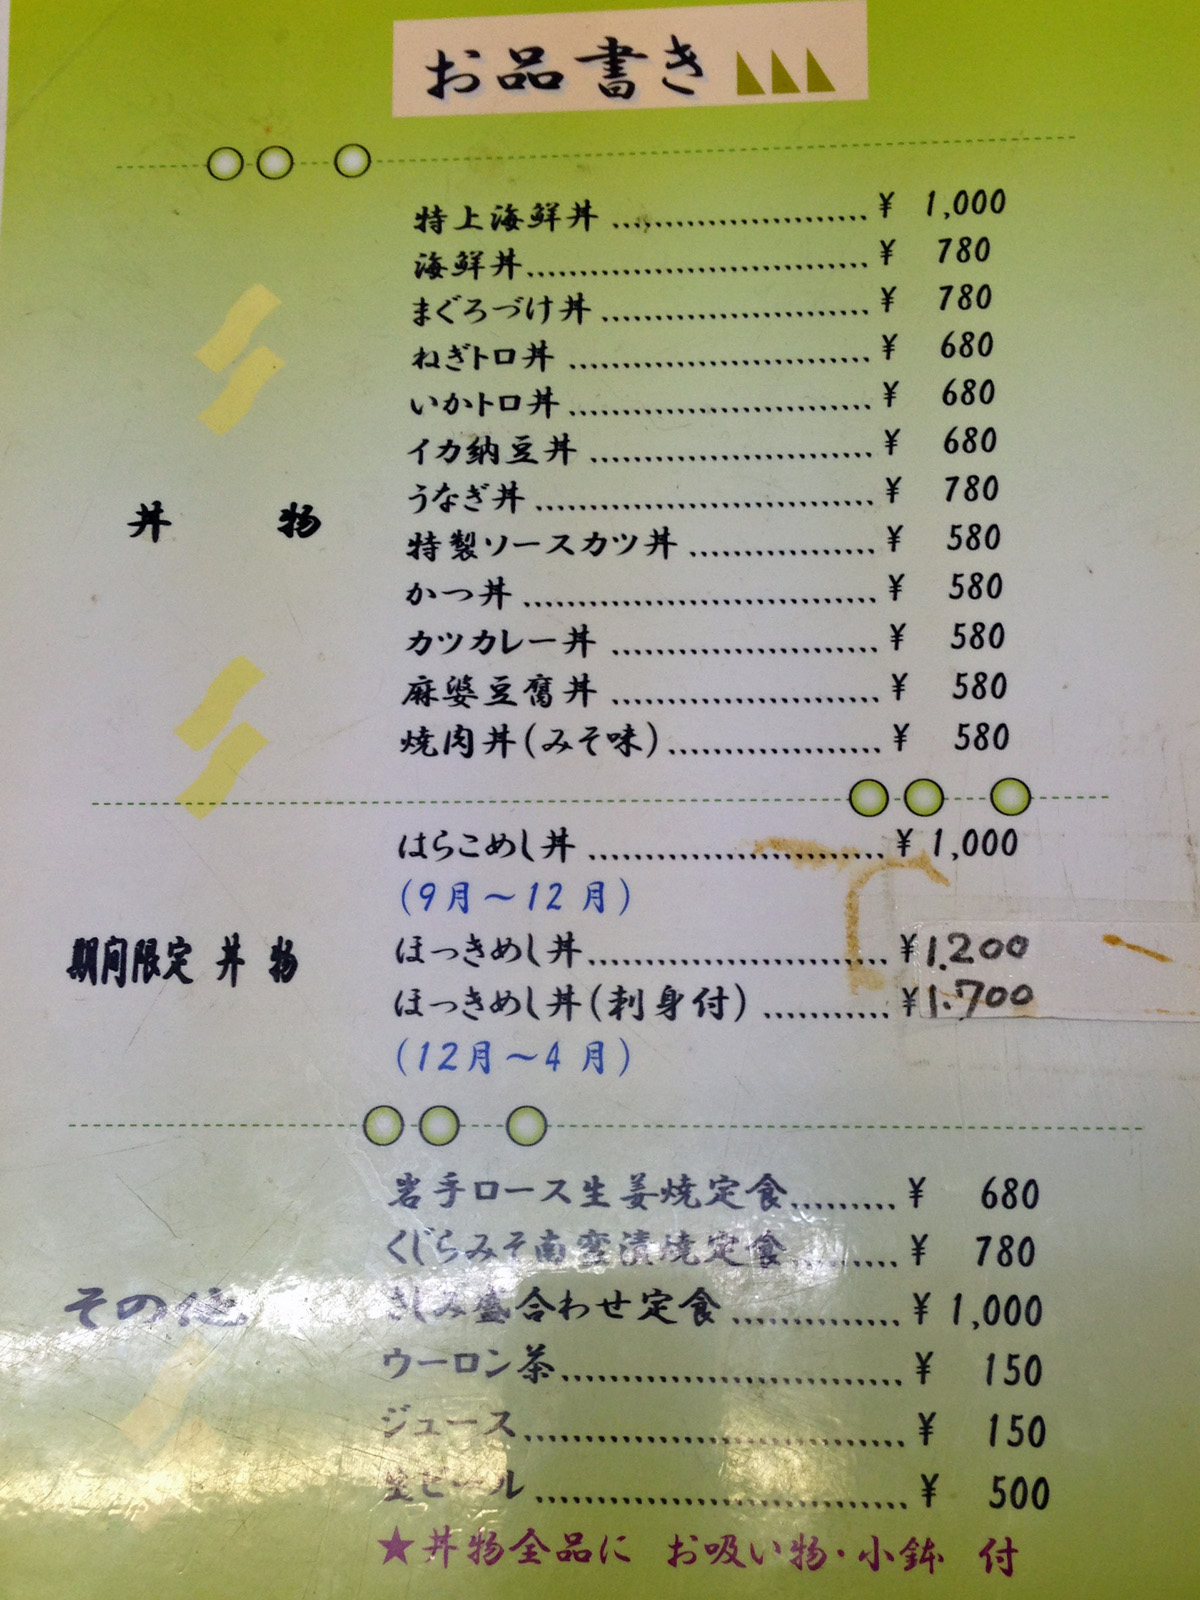 お品書き
丼物
特上海鮮丼 ¥ 1,000
海鮮丼 ¥ 780
まぐろづけ丼 ¥ 780
ねぎトロ丼 ¥ 680
いかトロ丼 ¥ 680
イカ納豆丼 ¥ 680
うなぎ丼 ¥ 780
特製ソースカツ丼 ¥ 580
かつ丼 ¥ 580
カツカレー丼 ¥ 580
麻婆豆腐丼 ¥ 580
焼肉丼(みそ味) ¥ 580
期间限定丼物
はらこめし丼 ¥ 1,000
(9月～12月)
ほっきめし丼 ¥1.200
ほっきめし丼(刺身付) ¥1.700
(12月～4月)
その他
岩手ロース生姜焼定食 ¥ 680
くじらみそ南蛮漬焼定食 ¥ 780
さしみ盛合わせ定食 ¥ 1,000
ウーロン茶 ¥ 150
ジュース ¥ 150
生ビール ¥ 500
★丼物全品に お吸い物・小鉢 付